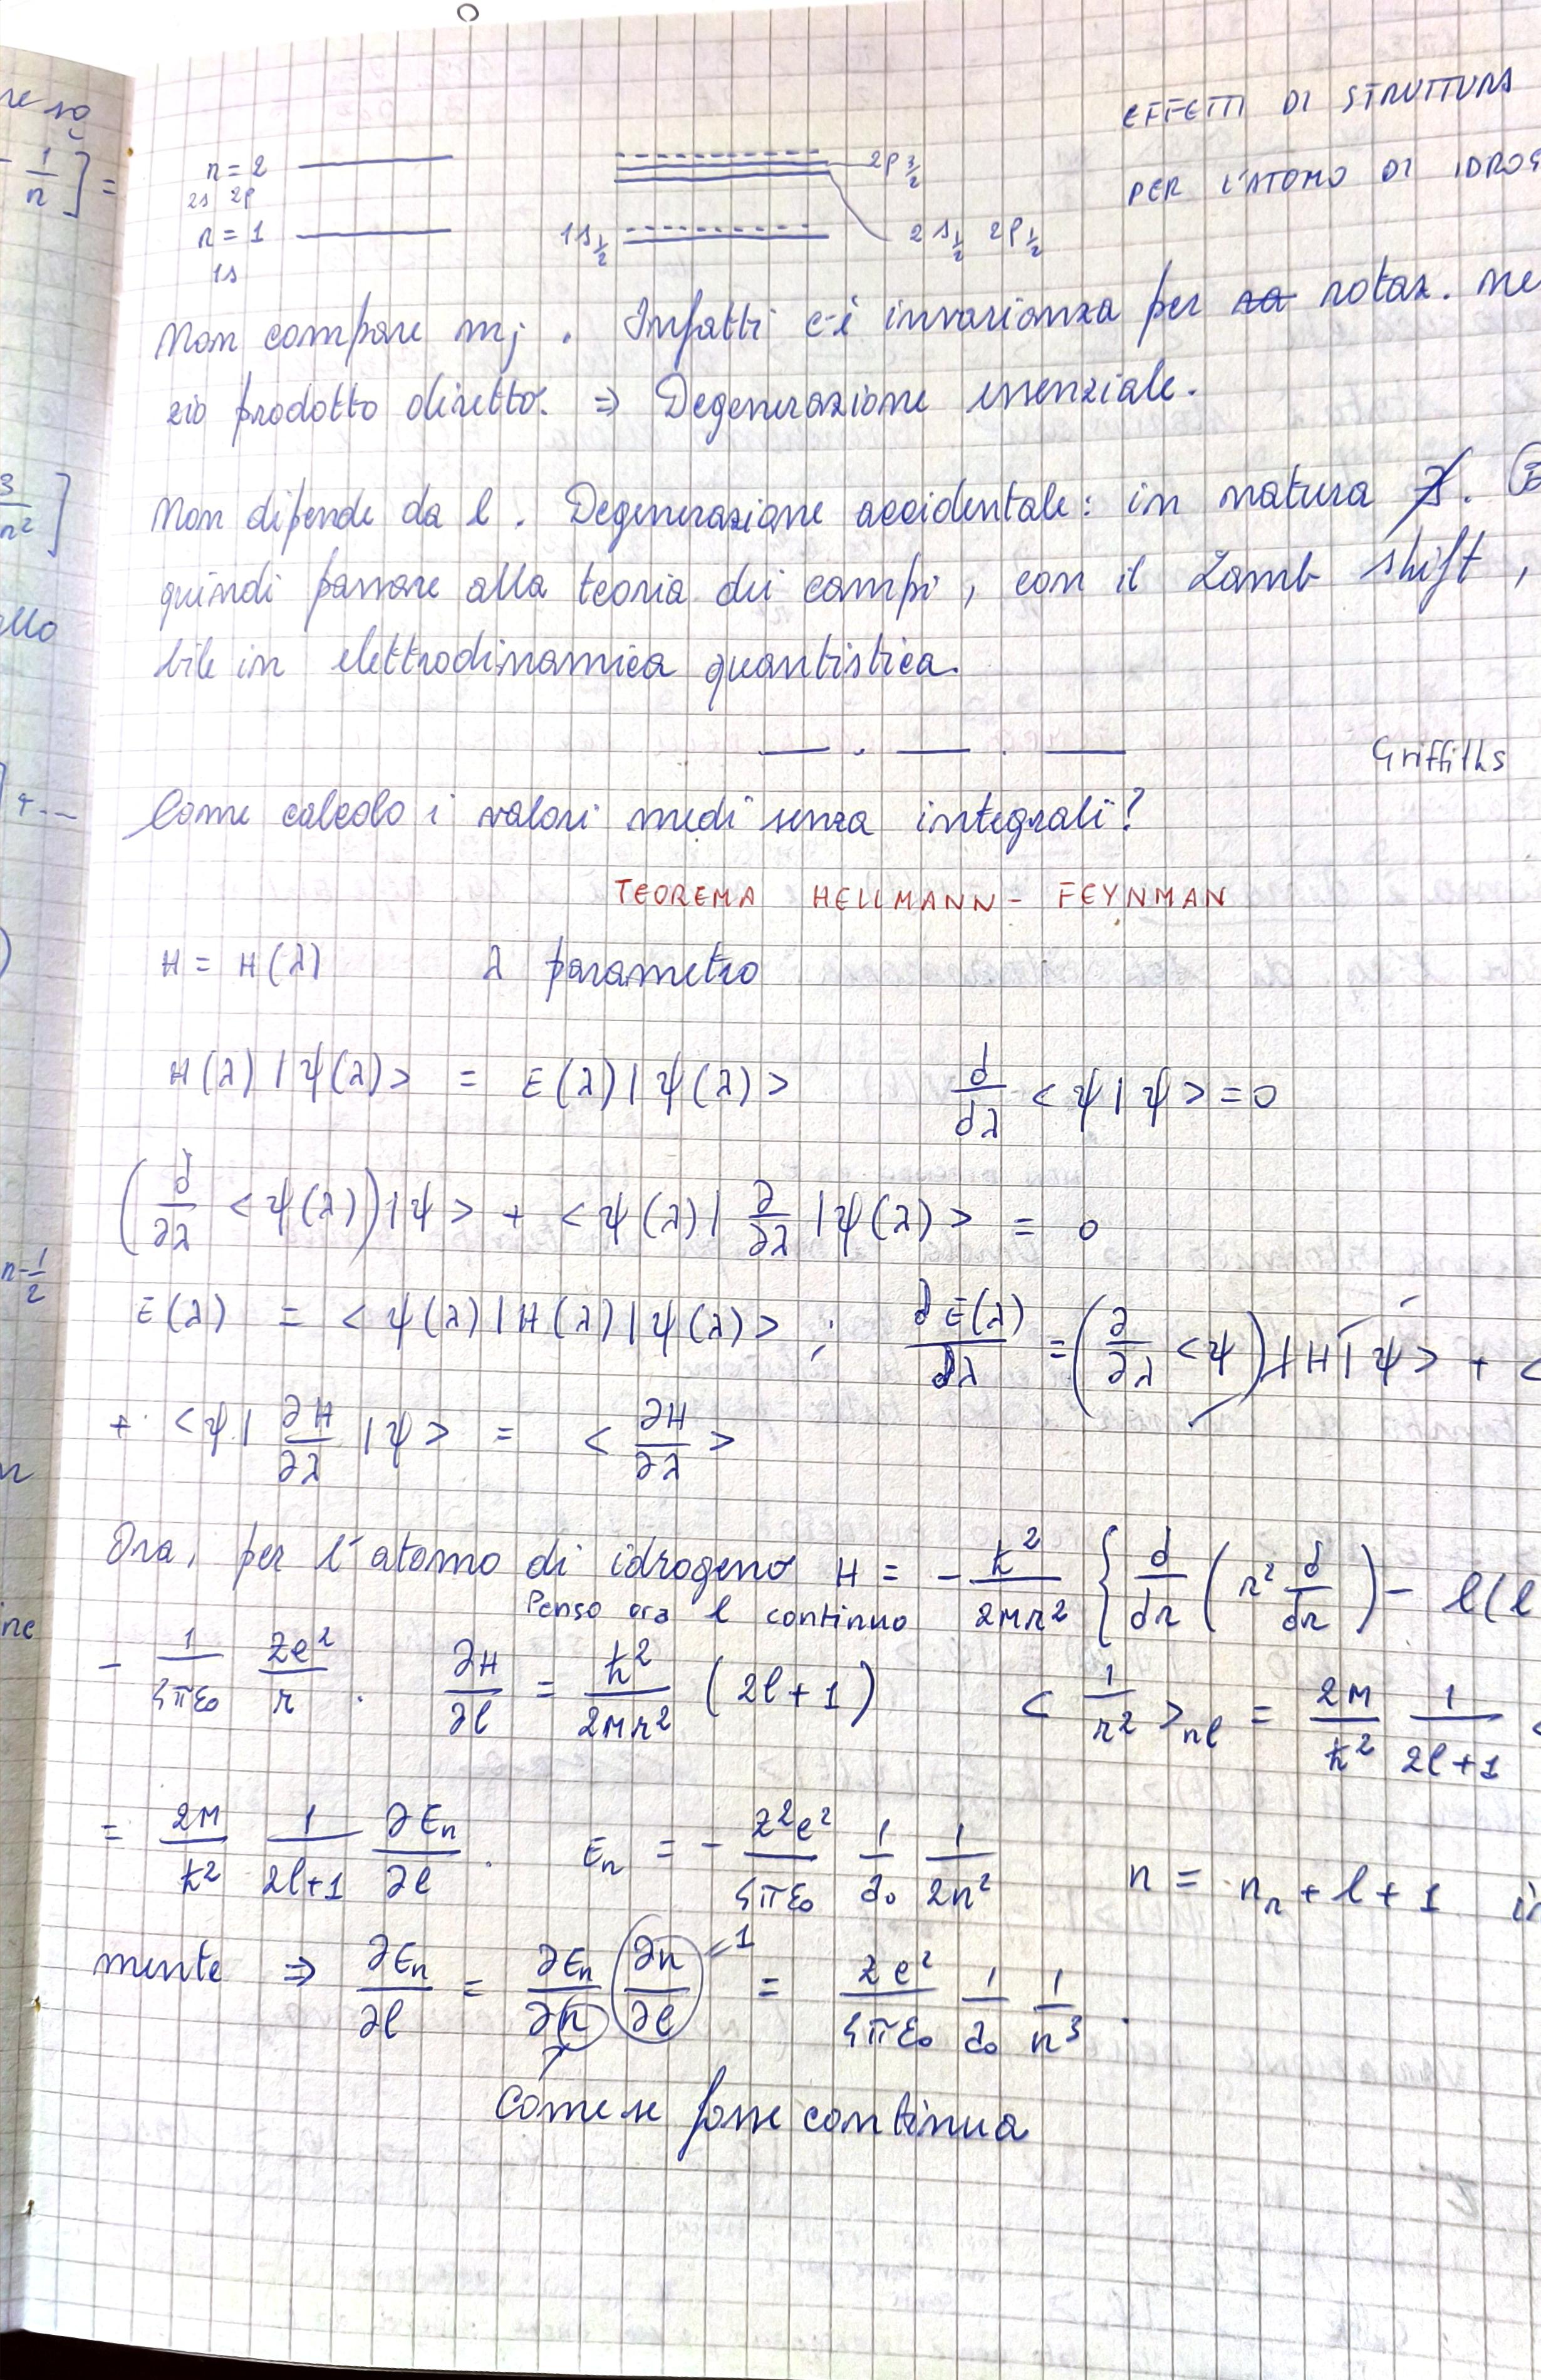 EFFETTI DI STRUTTURA
PER L'ATOMO DI IDROG
n = 2
2s 2p
n = 1
1s
2p 3/2
1s 1/2
2s 1/2 2p 1/2
Non compare mj . Infatti c'è invarianza per rotaz. ne
zio prodotto diretto. ⇒ Degenerazione essenziale.
Non dipende da l . Degenerazione accidentale: in natura ∄.
quindi passare alla teoria dei campi, con il Lamb shift ,
bile in elettrodinamica quantistica.
Griffiths
Come calcolo i valori medi senza integrali?
TEOREMA HELLMANN - FEYNMAN
H = H(λ) λ parametro
H(λ) |ψ(λ)> = E(λ)|ψ(λ)> d/dλ <ψ|ψ> = 0
(∂/∂λ <ψ(λ))|ψ> + <ψ(λ)| ∂/∂λ |ψ(λ)> = 0
E(λ) = <ψ(λ)|H(λ)|ψ(λ)> ; dE(λ)/dλ = (∂/∂λ <ψ)|H|ψ> + <
+ <ψ| ∂H/∂λ |ψ> = <∂H/∂λ>
Ora, per l'atomo di idrogeno H = - ħ²/2Mr² { d/dr (r² d/dr) - l(l
Penso ora l continuo
- 1/4πε₀ Ze²/r . ∂H/∂l = ħ²/2Mr² (2l+1) <1/r²>nl = 2M/ħ² 1/2l+1 <
= 2M/ħ² 1/2l+1 ∂En/∂l . En = - Z²e²/4πε₀ 1/a₀ 1/2n² n = nr + l + 1
mente ⇒ ∂En/∂l = ∂En/∂n ∂n/∂l = 1 = Ze²/4πε₀ 1/a₀ 1/n³ .
Come se fosse continua